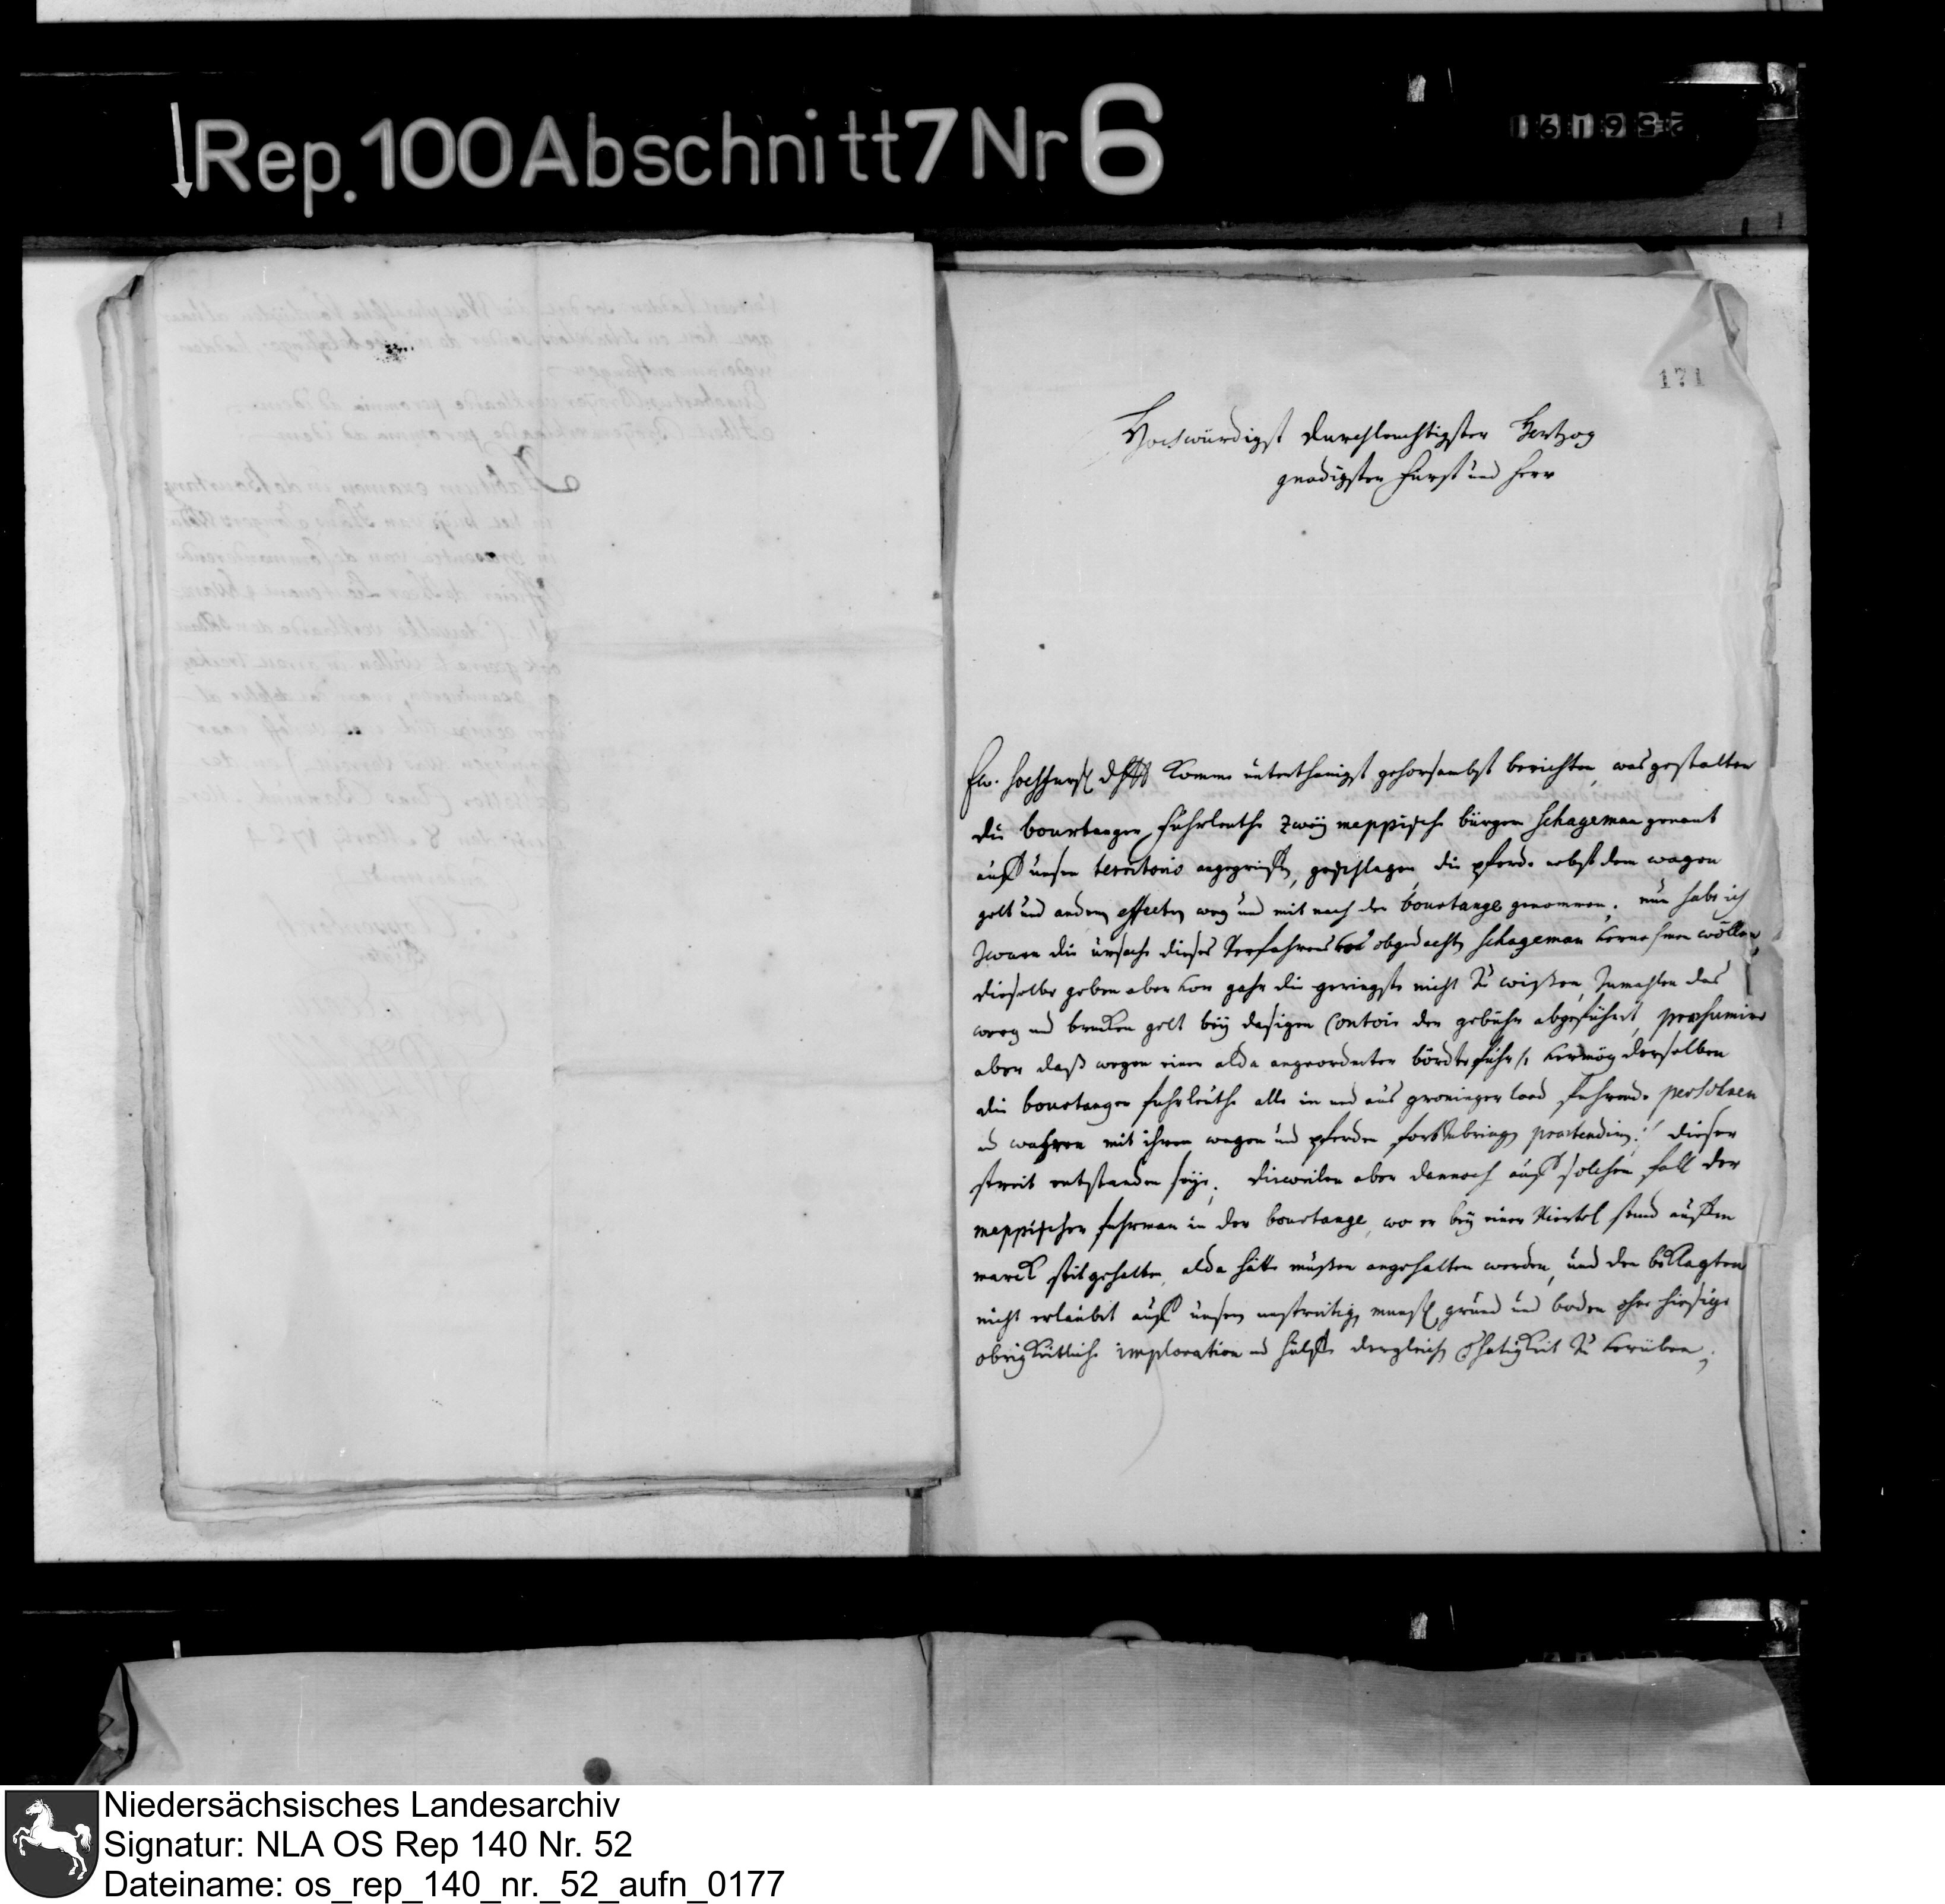 Rep. 100 Abschnitt 7 Nr 6
171
Hochwürdigst durchleuchtigster Hertzog
gnädigster Furst und Herr
Ew. hochfurstl dhlt komme unterthänigst gehorsambst berichten, was gestalten
die bourtanger fuhrleuthe zweÿ meppische bürger Schageman genant
auff unsen territorio angegriffen, geschlagen, die pferde nebst dem wagen
gelt und andern effecten weg und mit nach der bourtange genommen. nun habe ich
zwarn die ursache dieses verfahrens von obgedachten Schageman vernehmen wöllen,
dieselbe geben aber vor gahr die geringste nicht zu wißen, zumahlen das
weeg und brucken gelt beÿ dasigen Contoir der gebühr abgeführt, præsumire
aber daß wegen einer alda angeordneter bördtefuhr /: vermög derselben
die bourtanger fuhrleuthe alle in und aus groninger land fahrende persohnen
und wahren mit ihren wagen und pferden fortzubringen prætendiren :/ dieser
streit entstanden seÿe; dieweilen aber dannoch auff solchen fall der
meppischer fuhrman in der bourtange, wo er beÿ einer viertel stund auffm
marck stilgehalten, alda hätte müßen angehalten werden, und den beklagten
nicht erlaubet auff unsen unstreitigen grund und boden ohne hiesige
obrigkeitliche imploration und hülffe dergleichen thätigkeit zu verüben;
Niedersächsisches Landesarchiv
Signatur: NLA OS Rep 140 Nr. 52
Dateiname: os_rep_140_nr._52_aufn_0177